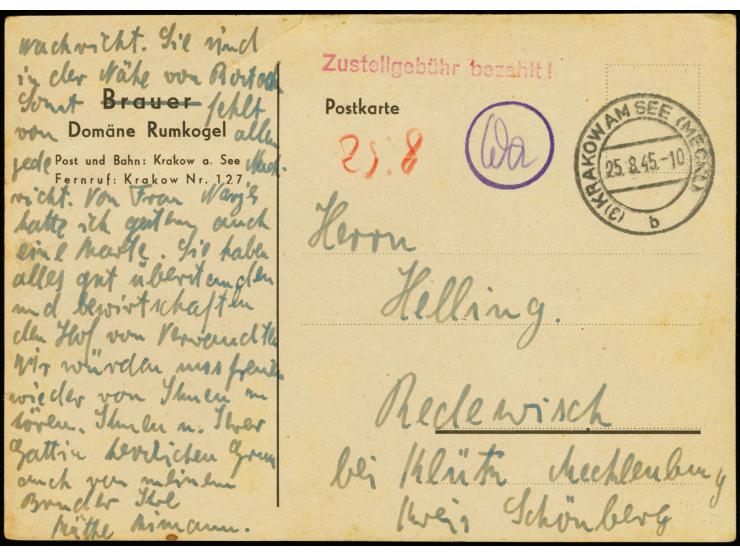 nachricht. Sie sind
in der Nähe von Rostock
Sonst fehlt
von allen
jede Nach-
richt. Von Frau
hatte ich gestern auch
eine Karte. Sie haben
alles gut überstanden
und bewirtschaften
den Hof von Verwandten
Wir würden uns freuen
wieder von Ihnen zu
hören. Ihnen u. Ihrer
Gattin herzlichen Gruss
auch von meinem
Bruder Ihre
Käthe
Brauer
Domäne Rumkogel
Post und Bahn: Krakow a. See
Fernruf: Krakow Nr. 127
Zustellgebühr bezahlt!
Postkarte
25.8
Wa
(3) KRAKOW AM SEE (MECKL)
25.8.45.-10
b
Herrn
Helling.
Redewisch
bei Klütz Mecklenburg
Kreis Schönberg